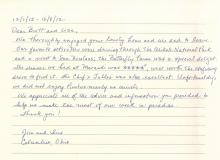 12/1/12 - 12/8/12
Dear Brett and Lisa,
We thoroughly enjoyed your lovely home and are sad to leave.
Our favorite activities were driving through The National Park
and a visit to San The Butterfly Farm was a special delight
The dinner we had at was ★★★★★, well worth the
drive to find it. The Chef's Tables was also excellent. Unfortunately,
we did not enjoy
We appreciate all of the advice and information you provided to
help us make the most of our week in paradise.
Thank you!
Jim and
Columbus, Ohio